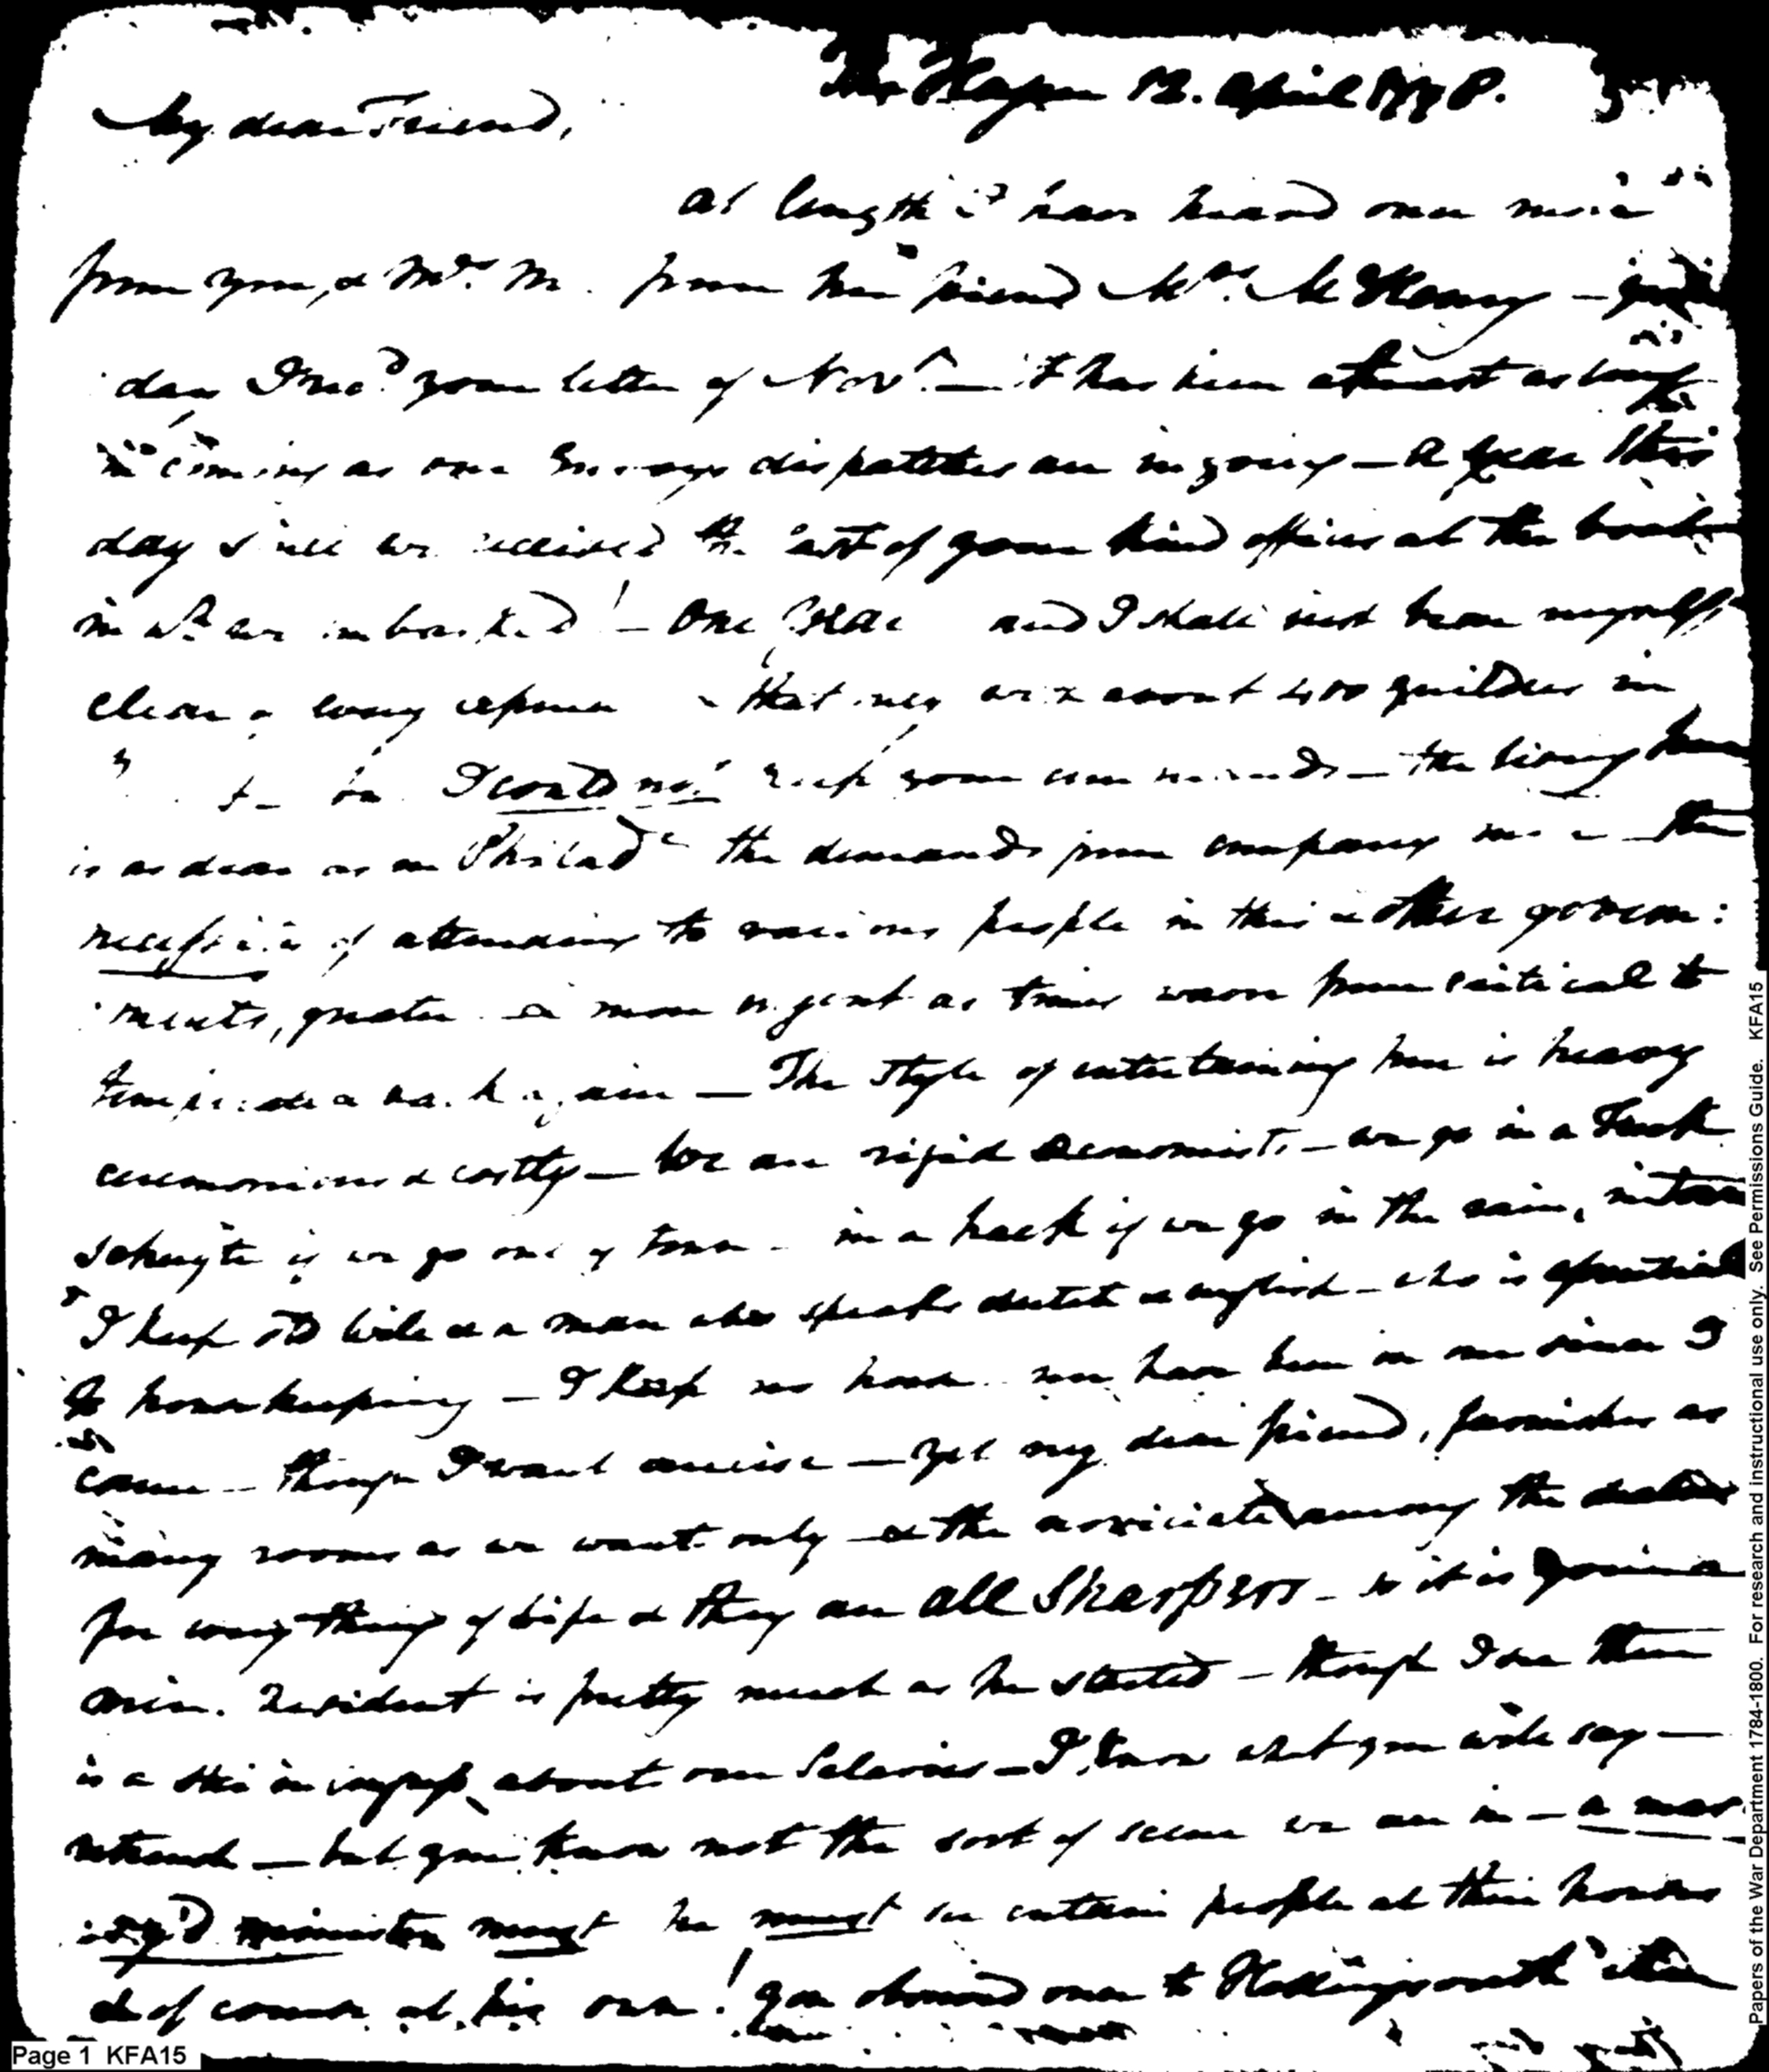 The Hague 12. April 1798.
My dear Friend,
At length I have heard once more
from you, & Mrs. M. from her friend Mrs. McHenry —
day I recd your letter of Novr — it has been almost as long
in coming as our Envoys dispatches are in going — a year this
day since we received the last of your kind offices at the
in wh we imbarked! — One Year and I shall just bear myself
clear, every expence that my about 400 guilders in
I could not keep your commands — the living here
is as dear as in Philada the demands from company the
necessities of attending to various people in this & other govern:
ments, greater & more urgent as times from critical to
temperate & back again — The style of entertaining here is heavy
ceremonious & costly — We are rigid Economists — we go in a
Schuyte if we go out of town — in a hack if we go in the rain,
I keep old & a man who speaks dutch & english — who is essential
to housekeeping — I keep no horse nor have been on one since I
came — though I want exercise — yet my dear friend, furnishes as
many rooms as we want only & the noviciate among the dealers
for every thing of life & they are all Sharpers — so it is
Min. Resident is pretty much as he started — though I see there
is a about our Salaries — I know what you will say —
retrench — but you know not the sort of scene we are in — a mar
minister must he must see certain people at their houses
& of course at his own! You observed once to Hollingsworth
Page 1 KFA15
Papers of the War Department 1784-1800. For research and instructional use only. See Permissions Guide. KFA15